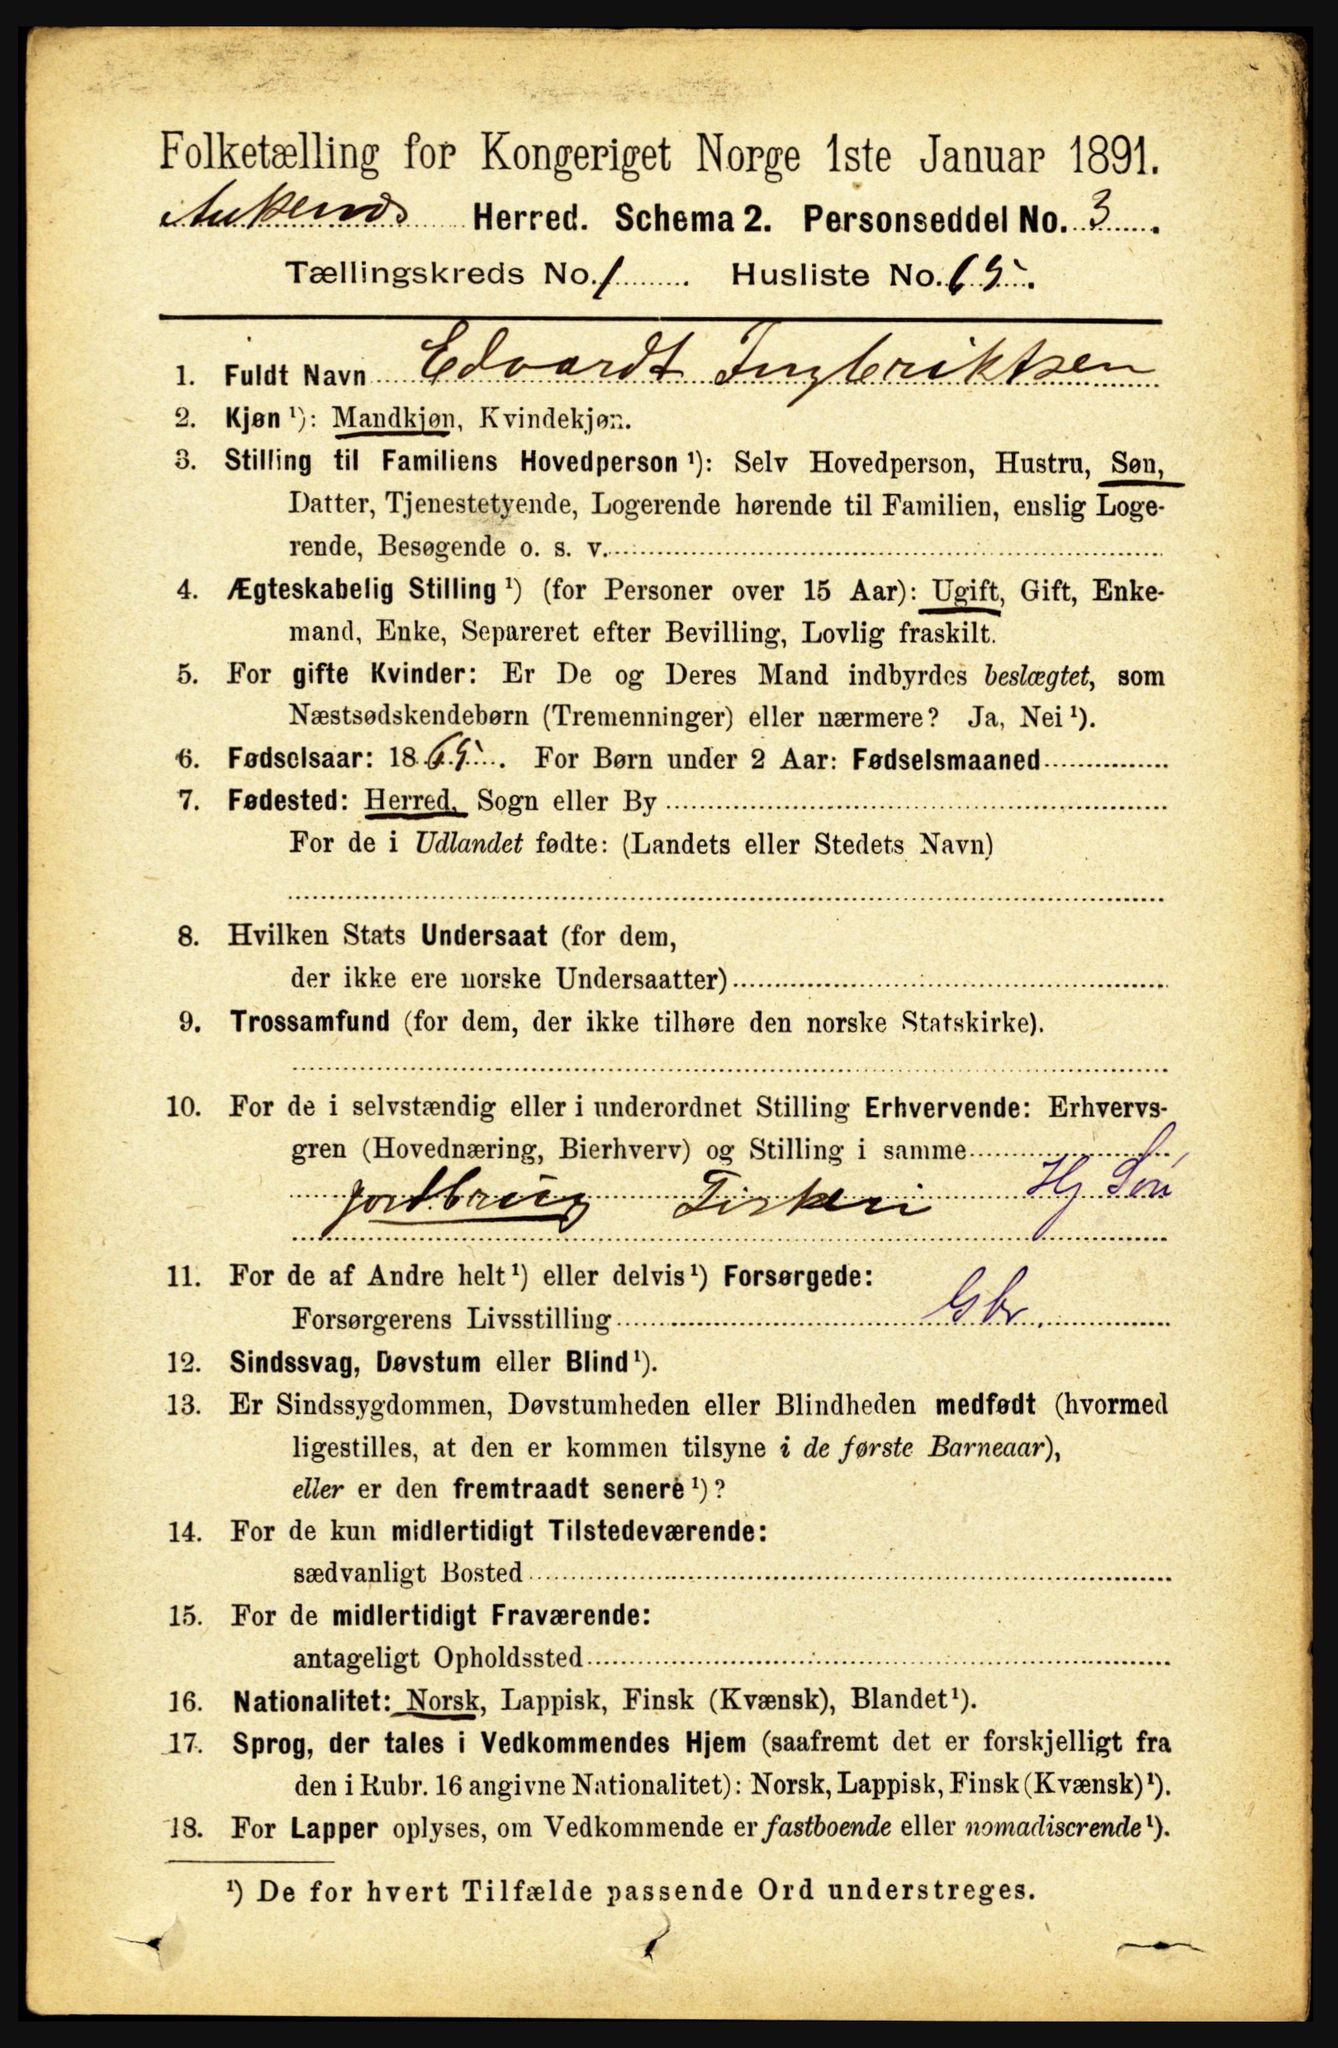 Folketælling for Kongeriget Norge 1ste Januar 1891.
Aukends Herred. Schema 2. Personseddel No. 3.
Tællingskreds No. 1. Husliste No. 65.
1. Fuldt Navn Edvardt Ingbriktsen
2. Kjøn ¹): Mandkjøn, Kvindekjøn.
3. Stilling til Familiens Hovedperson ¹): Selv Hovedperson, Hustru, Søn,
Datter, Tjenestetyende, Logerende hørende til Familien, enslig Loge-
rende, Besøgende o. s. v.
4. Ægteskabelig Stilling ¹) (for Personer over 15 Aar): Ugift, Gift, Enke-
mand, Enke, Separeret efter Bevilling, Lovlig fraskilt.
5. For gifte Kvinder: Er De og Deres Mand indbyrdes beslægtet, som
Næstsødskendebørn (Tremenninger) eller nærmere? Ja, Nei ¹).
6. Fødselsaar: 1865. For Børn under 2 Aar: Fødselsmaaned
7. Fødested: Herred, Sogn eller By
For de i Udlandet fødte: (Landets eller Stedets Navn)
8. Hvilken Stats Undersaat (for dem,
der ikke ere norske Undersaatter)
9. Trossamfund (for dem, der ikke tilhøre den norske Statskirke).
10. For de i selvstændig eller i underordnet Stilling Erhvervende: Erhvervs-
gren (Hovednæring, Bierhverv) og Stilling i samme
jordbrug Fiskeri Hj Søn
11. For de af Andre helt ¹) eller delvis ¹) Forsørgede:
Forsørgerens Livsstilling Gbr.
12. Sindssvag, Døvstum eller Blind ¹).
13. Er Sindssygdommen, Døvstumheden eller Blindheden medfødt (hvormed
ligestilles, at den er kommen tilsyne i de første Barneaar),
eller er den fremtraadt senere ¹)?
14. For de kun midlertidigt Tilstedeværende:
sædvanligt Bosted
15. For de midlertidigt Fraværende:
antageligt Opholdssted
16. Nationalitet: Norsk, Lappisk, Finsk (Kvænsk), Blandet ¹).
17. Sprog, der tales i Vedkommendes Hjem (saafremt det er forskjelligt fra
den i Rubr. 16 angivne Nationalitet): Norsk, Lappisk, Finsk (Kvænsk) ¹).
18. For Lapper oplyses, om Vedkommende er fastboende eller nomadiserende ¹).
¹) De for hvert Tilfælde passende Ord understreges.